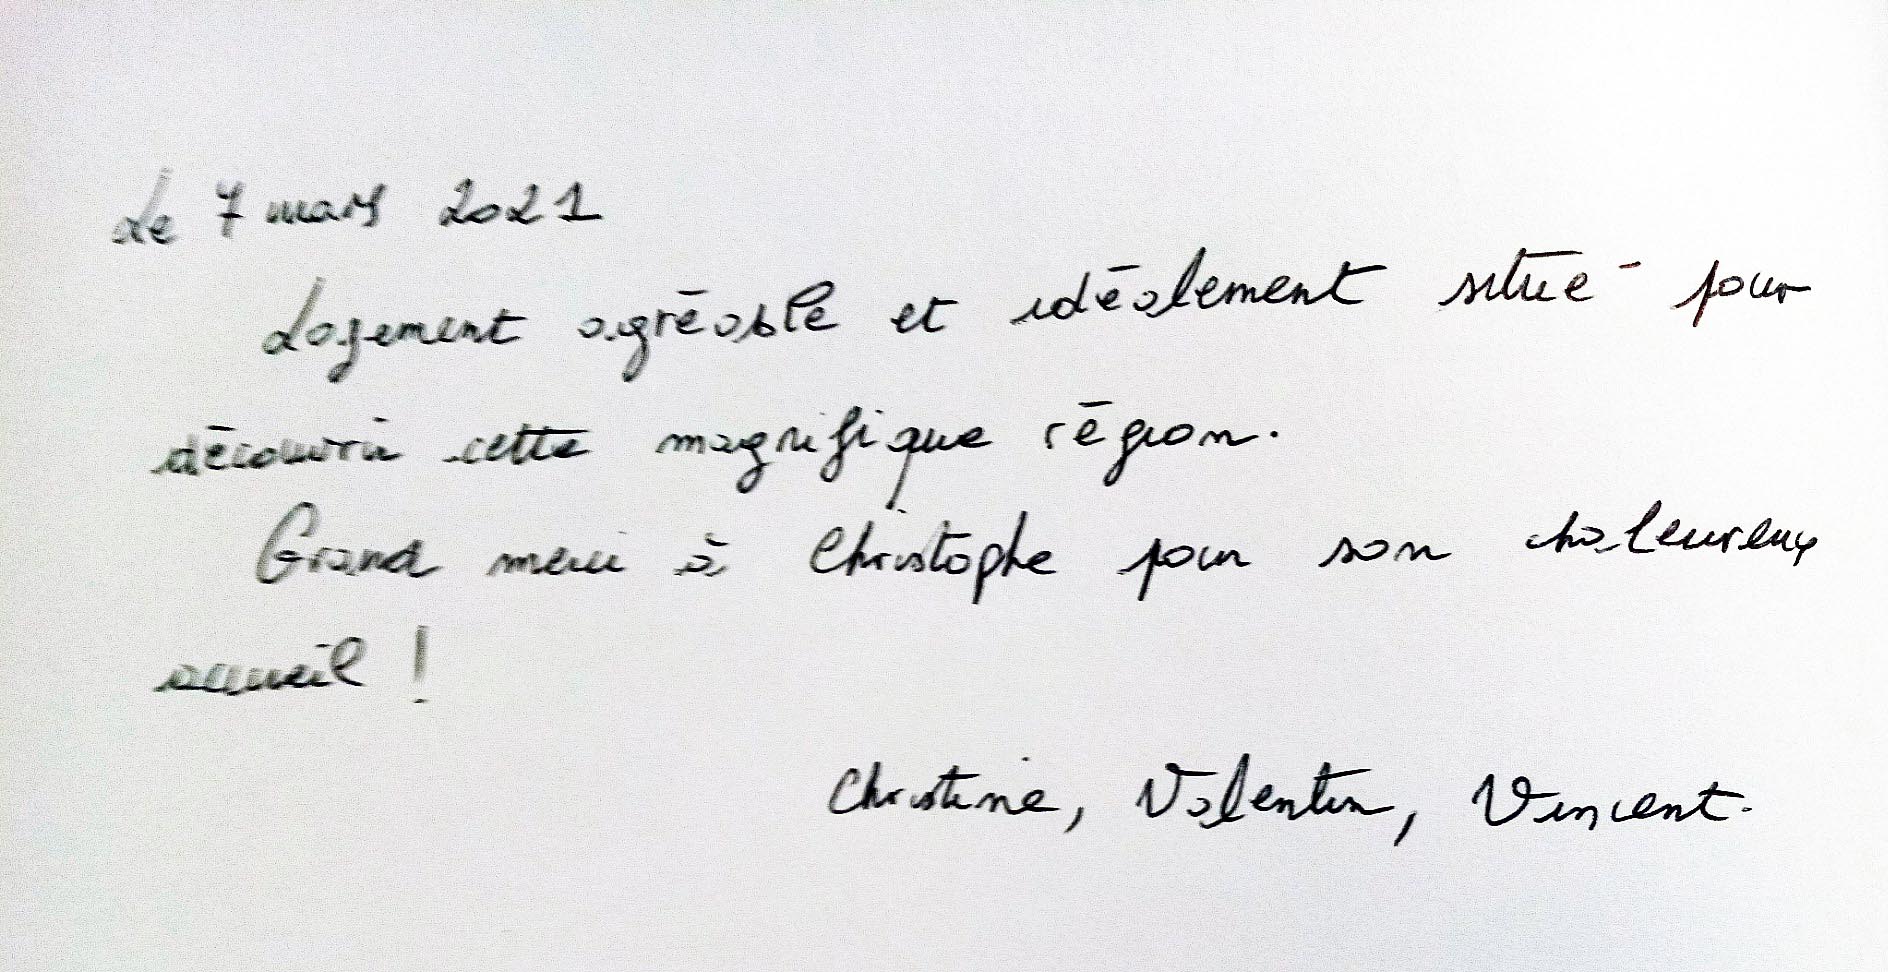 Le 7 mars 2021
Logement agréable et idéalement situé pour
découvrir cette magnifique région.
Grand merci à Christophe pour son chaleureux
accueil !
Christine, Valentin, Vincent.